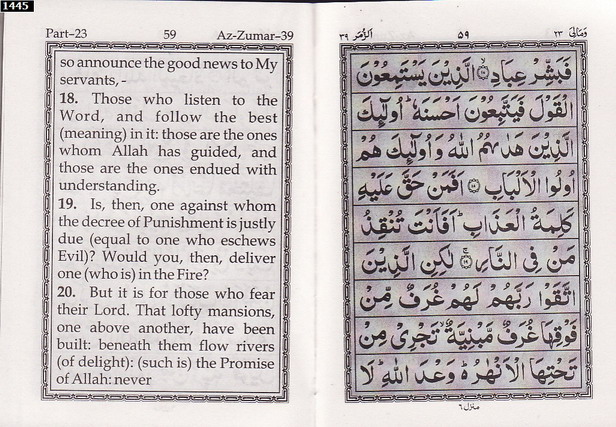 1445
Part-23 59 Az-Zumar-39
so announce the good news to My
servants, -
18. Those who listen to the
Word, and follow the best
(meaning) in it: those are the ones
whom Allah has guided, and
those are the ones endued with
understanding.
19. Is, then, one against whom
the decree of Punishment is justly
due (equal to one who eschews
Evil)? Would you, then, deliver
one (who is) in the Fire?
20. But it is for those who fear
their Lord. That lofty mansions,
one above another, have been
built: beneath them flow rivers
(of delight): (such is) the Promise
of Allah: never
اَلزُّمَر ٣٩ ٥٩ وَمَالِیَ ٢٣
فَبَشِّرْ عِبَادِ ۙ﴿۱۷﴾ الَّذِيْنَ يَسْتَمِعُوْنَ
الْقَوْلَ فَيَتَّبِعُوْنَ اَحْسَنَهٗ ؕ اُولٰٓئِكَ
الَّذِيْنَ هَدٰىهُمُ اللّٰهُ وَاُولٰٓئِكَ هُمْ
اُولُوا الْاَلْبَابِ ﴿۱۸﴾ اَفَمَنْ حَقَّ عَلَيْهِ
كَلِمَةُ الْعَذَابِ ؕ اَفَاَنْتَ تُنْقِذُ
مَنْ فِى النَّارِ ۚ﴿۱۹﴾ لٰكِنِ الَّذِيْنَ
اتَّقَوْا رَبَّهُمْ لَهُمْ غُرَفٌ مِّنْ
فَوْقِهَا غُرَفٌ مَّبْنِيَّةٌ ۙ تَجْرِىْ مِنْ
تَحْتِهَا الْاَنْهٰرُ ۬ؕ وَعْدَ اللّٰهِ ؕ لَا
منزل ٦